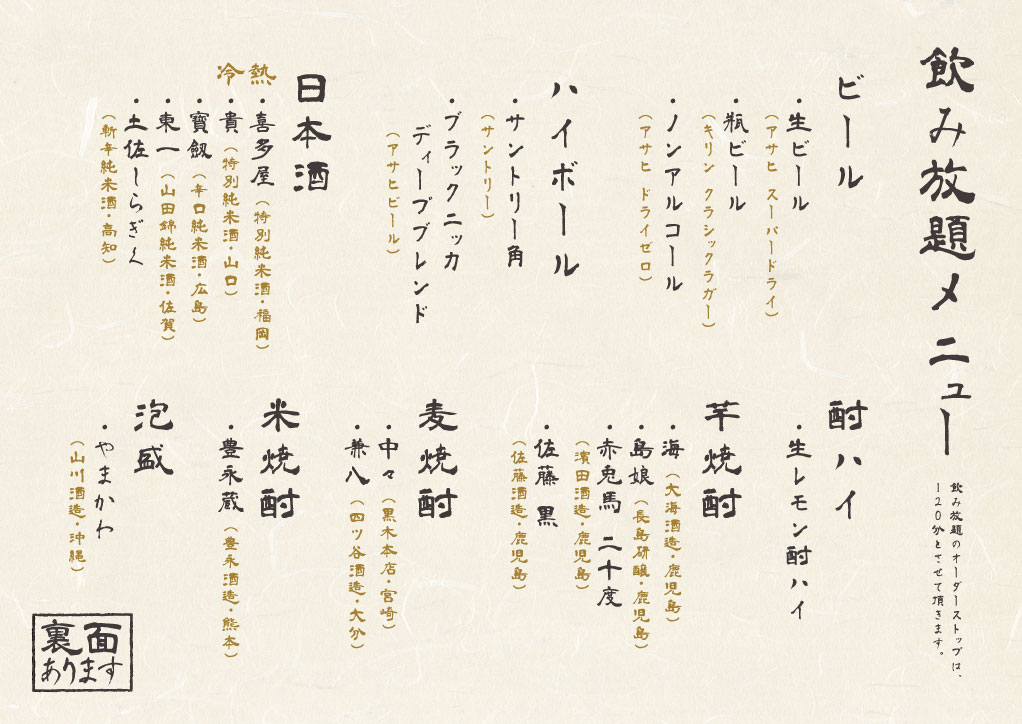 飲み放題メニュー
飲み放題のオーダーストップは、
120分とさせて頂きます。
ビール
・生ビール
（アサヒ スーパードライ）
・瓶ビール
（キリン クラシックラガー）
・ノンアルコール
（アサヒ ドライゼロ）
ハイボール
・サントリー角
（サントリー）
・ブラックニッカ
ディープブレンド
（アサヒビール）
日本酒
熱
・喜多屋（特別純米酒・福岡）
冷
・貴（特別純米酒・山口）
・寶劔（辛口純米酒・広島）
・東一（山田錦純米酒・佐賀）
・土佐しらぎく
（斬辛純米酒・高知）
酎ハイ
・生レモン酎ハイ
芋焼酎
・海（大海酒造・鹿児島）
・島娘（長島研醸・鹿児島）
・赤兎馬 二十度
（濱田酒造・鹿児島）
・佐藤 黒
（佐藤酒造・鹿児島）
麦焼酎
・中々（黒木本店・宮崎）
・兼八（四ツ谷酒造・大分）
米焼酎
・豊永蔵（豊永酒造・熊本）
泡盛
・やまかわ
（山川酒造・沖縄）
裏面
あります